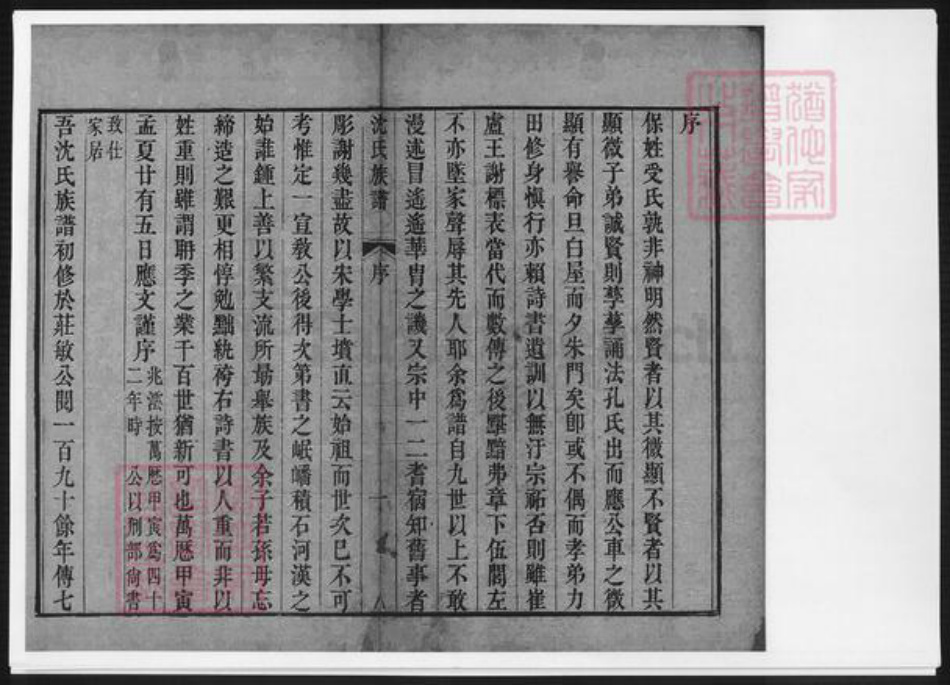 序
保姓受氏孰非神明然賢者以其微顯不賢者以其
顯微子弟誠賢則孳孳誦法孔氏出而應公車之徵
顯有譽命旦白屋而夕朱門矣卽或不偶而孝弟力
田修身愼行亦賴詩書遺訓以無汙宗祏否則雖崔
盧王謝標表當代而數傳之後黶黯弗章下伍閭左
不亦墜家聲辱其先人耶余爲譜自九世以上不敢
漫述冒遙遙華冑之譏又宗中一二耆宿知舊事者
沈氏族譜 序 一
彫謝幾盡故以宋學士墳直云始祖而世次已不可
考惟定一宣敎公後得次第書之岷嶓積石河漢之
始誰鍾上善以繁支流所朂舉族及余子若孫毋忘
締造之艱更相惇勉黜紈袴右詩書以人重而非以
姓重則雖謂聃季之業千百世猶新可也萬曆甲寅
孟夏廿有五日應文謹序
兆澐按萬曆甲寅爲四十
二年時 公以刑部尙書
致仕
家居
吾沈氏族譜初修於莊敏公閱一百九十餘年傳七